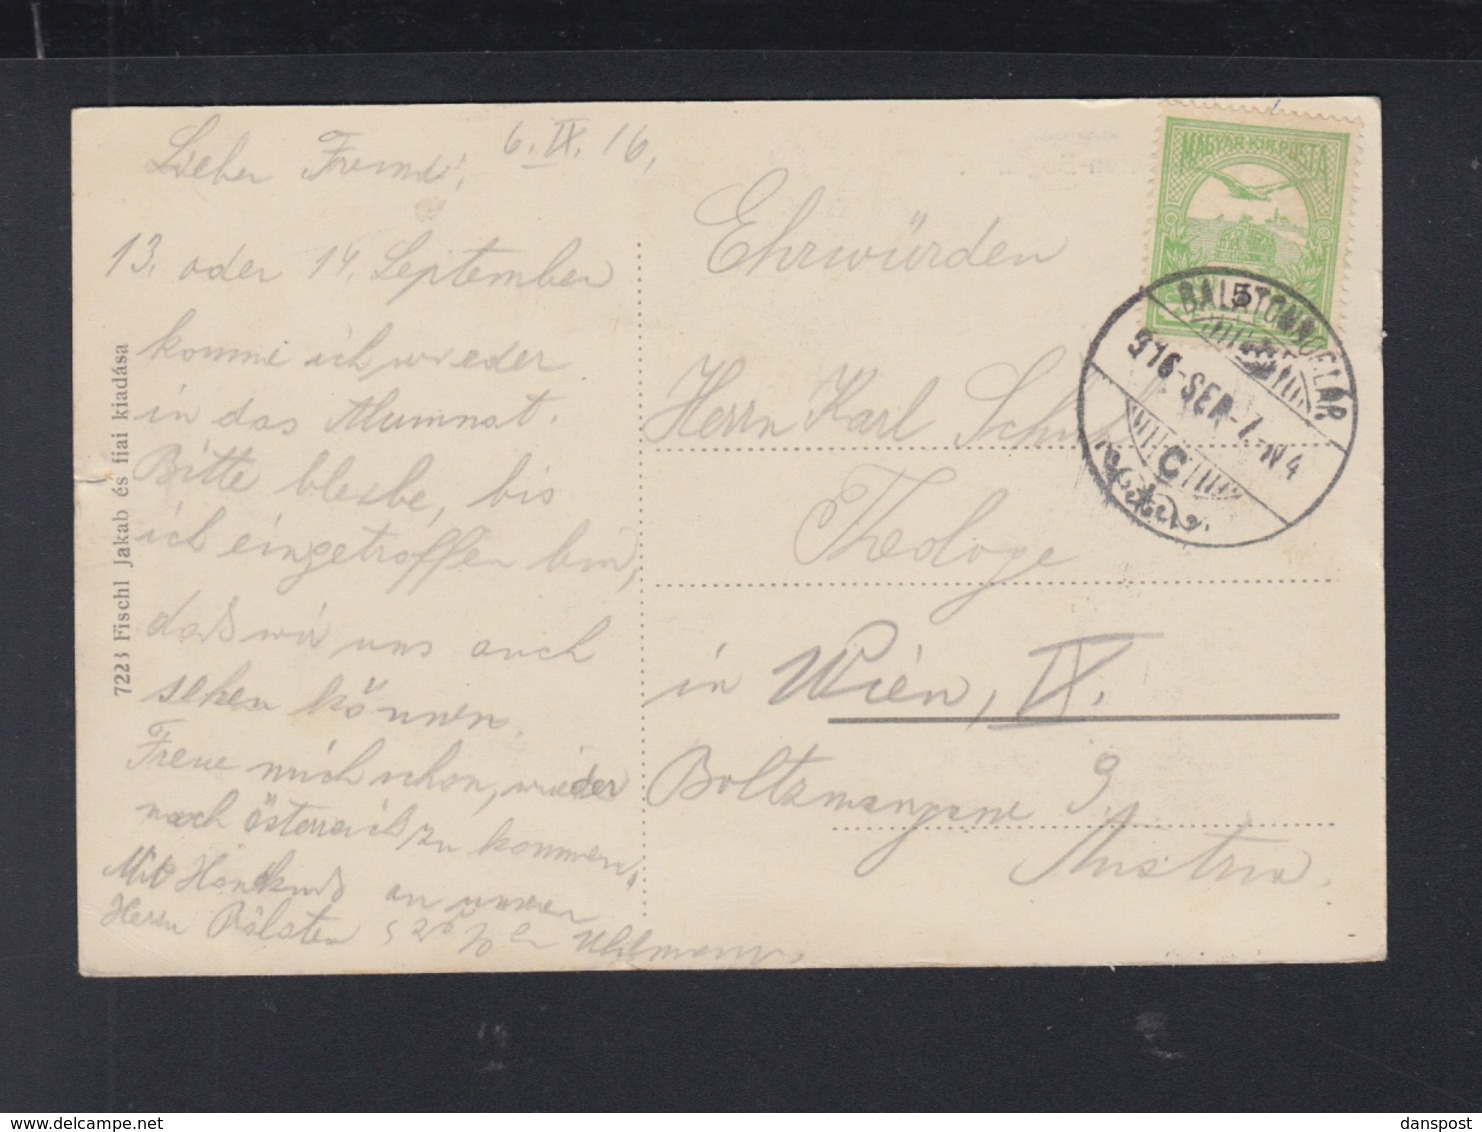 6. IX. 16.
Lieber Freund!
13. oder 14. September
komme ich wieder
in das Alumnat.
Bitte bleibe, bis
ich eingetroffen bin,
daß wir uns auch
sehen können.
Freue mich schon, wieder
nach Österreich zu kommen,
Mit Handkuß an unseren
Herrn
Uhlmann.
7223 Fischl Jakab és fiai kiadása
MAGYAR KIR. POSTA
5
916-SEP-7.-N4
C
Ehrwürden
Herrn Karl
Theologe
in Wien, IX.
Boltzmanngasse 9
Austria.
delcampe.net
danspost